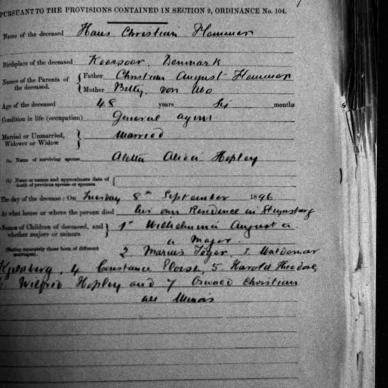 PURSUANT TO THE PROVISIONS CONTAINED IN SECTION 9, ORDINANCE No. 104.
Name of the deceased Hans Christian Hammer
Birthplace of the deceased Korsoor, Denmark
Names of the Parents of the deceased. Father Christian August Hammer
Mother Betty von
Age of the deceased 48 years Six months
Condition in life (occupation) General agent
Married or Unmarried, Widower or Widow Married
(a) Name of surviving spouse Aletta Alida Hopley
(b) Name or names and approximate date of death of previous spouse or spouses
The day of the decease: On Tuesday 8th September 1896
At what house or where the person died his own Residence in Steynsburg
Names of Children of deceased, and whether majors or minors 1st Wilhelmina Augusta
a Major
2 Marius 3 Waldemar
4 Constance 5 Harold
Wilfred Hopley and 7 Oswald Christian
all Minors